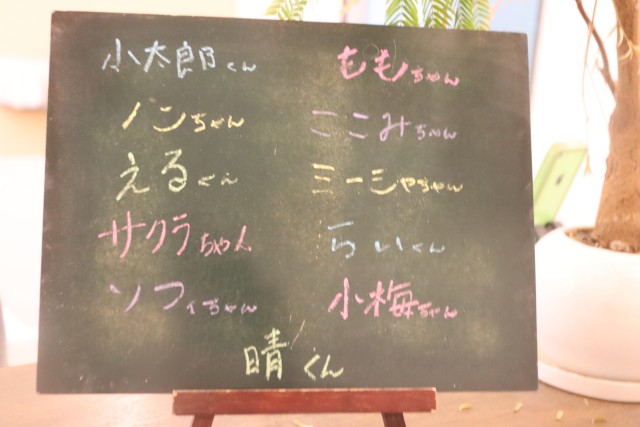 小太郎くん
ノンちゃん
えるくん
サクラちゃん
ソフィちゃん
ももちゃん
ここみちゃん
ミーシャちゃん
らいくん
小梅ちゃん
晴くん